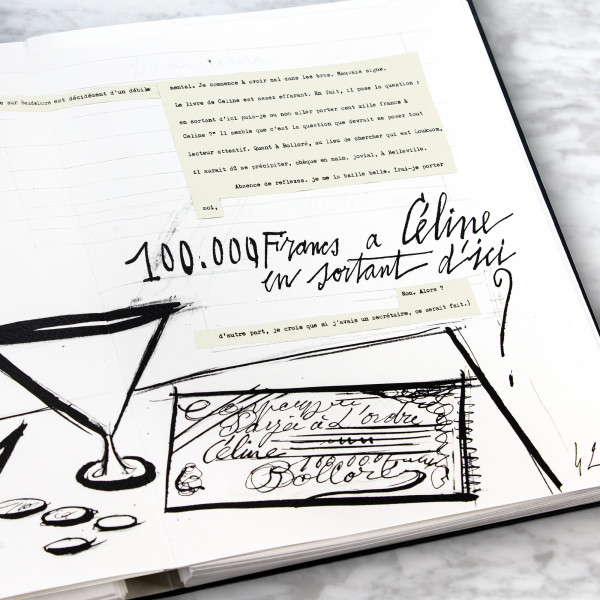 e sur Baudelaire est décidément d'un débile mental. Je commence à avoir mal dans les bras. Mauvais signe.
Le livre de Celine est assez effarant. En fait, il pose la question :
en sortant d'ici puis-je ou non aller porter cent mille francs à
Celine ?" Il semble que c'est la question que devrait se poser tout
lecteur attentif. Quant à Bolloré, au lieu de chercher qui est Loukoum,
il aurait dû se précipiter, chèque en main, jovial, à Bellsville.
Absence de reflexes. je me la baille belle. Irai-je porter
moi,
100.000 Francs a Céline
en sortant d'ici
?
Non. Alors ?
d'autre part, je crois que si j'avais un secrétaire, ce serait fait.)
Payez à L'ordre
Céline
100.000
Bolloré